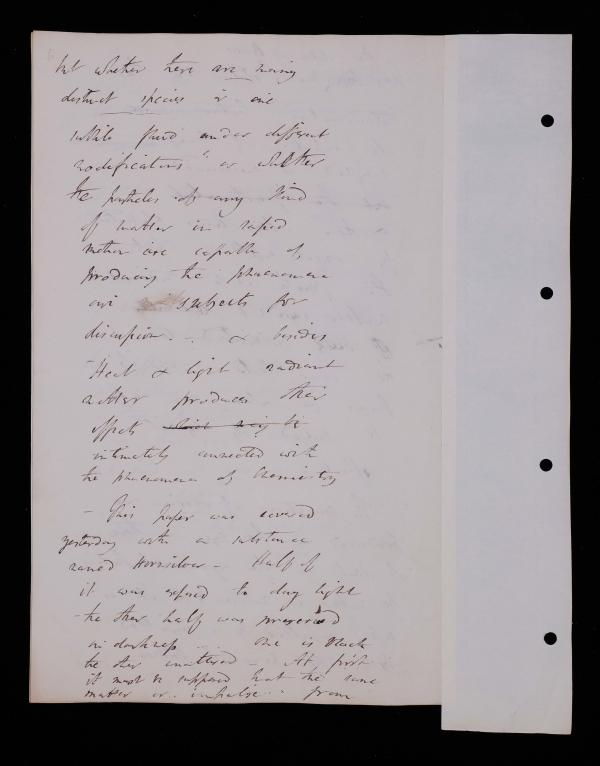 but whether there are many
distinct species or one
subtile fluid under different
modifications" or whether
the particles of any kind
of matter in rapid
motion are capable of
producing the phaenomena
are subjects for
discussion. . & besides
Heat & light radiant
matter produces other
effects which may be
intimately connected with
the phaenomena of Chemistry
- This paper was covered
yesterday with a substance
named Hornsilver - Half of
it was exposed to day light
the other half was preserved
in darkness .. One is black
the other unaltered - At first
it must be supposed that the same
matter or .. impulse .. from